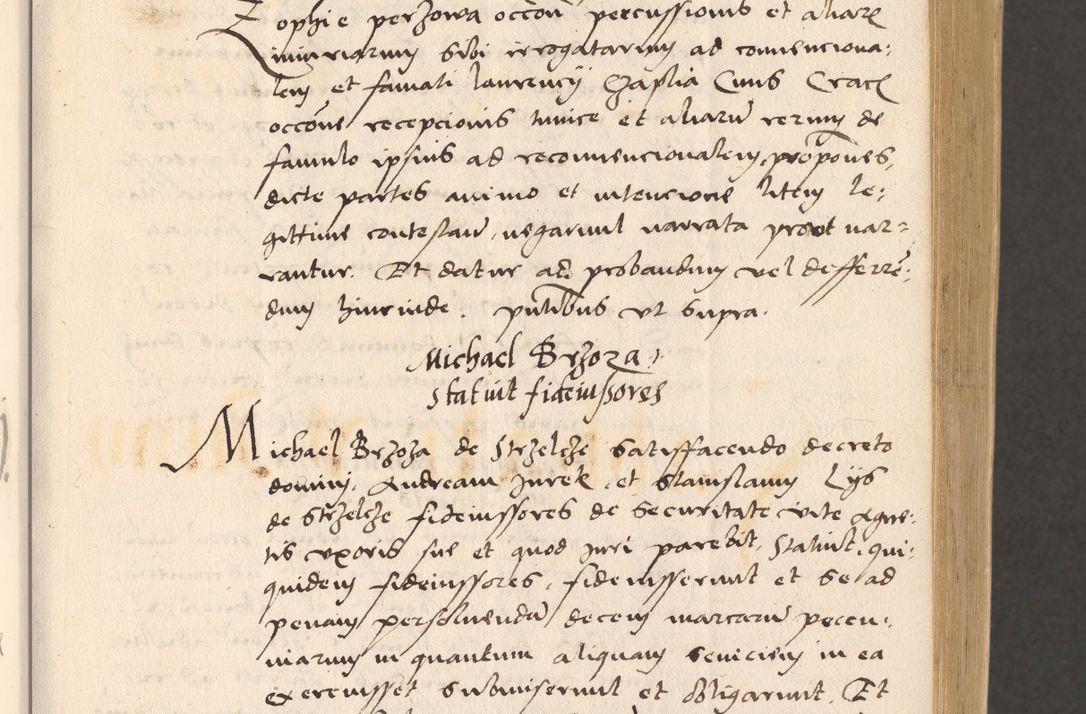 Zophie perzowa occoñ percussionis et aliarᷓ
iniuriarum sibi irrogatarum ad convenciona-
lem et famati laurencij Czaplia Civis Crac
occoñe recepcionis tunice et aliarū rerum de
famulo ipsius ad reconvencionalem, propones,
dicte partes animo et intencione litem le-
gittime contestañ, negarunt narrata prout nar-
rantur. Et datur ad probandum vel defferrē-
dum hincinde. pñtibus ut supra.
Michael Brzoza
Statuit fideiussores
Michael Brzoza de Strzelcze satisffacendo decreto
domini, Andream Jurek, et Stanislaum Lys
de Strzelcze fideiussores de securitate vite Agne-
tis uxoris sue et quod juri parebit, Statuit, qui-
quidem fideiussores, fideiusserunt et se ad
penam persolvendā decem marcarū pecu-
niarum in quantum aliquam seviciem in ea
exercuisset submiserunt et obligarunt. Et